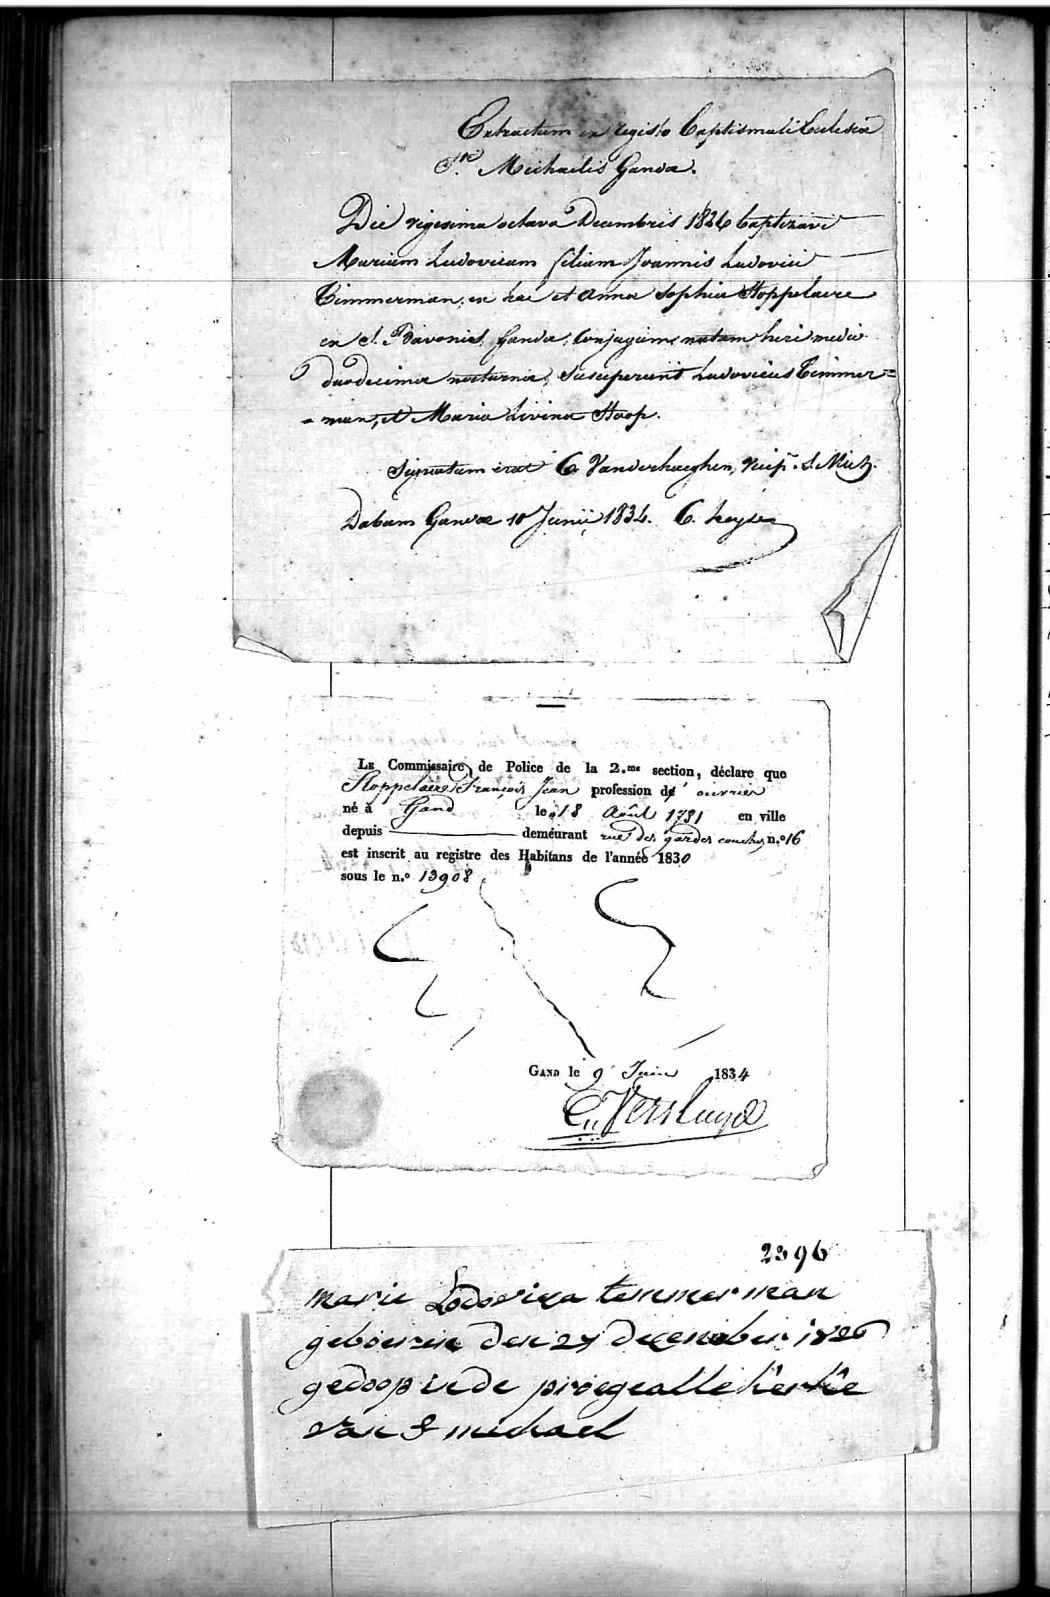 Extractum ex registo baptismali Ecclesiæ
Sti. Michaelis Gandæ.
Die vigesima octava Decembris 1826 baptizavi
Mariam Ludovicam filiam Joannis Ludovici
Timmerman, ex hac et Annæ Sophiæ Stoppelaere
ex St. Bavonis Gandæ, Conjugum natam heri media
duodecima nocturna, Susceperunt Ludovicus Timmer=
=man, et Maria Livina Stoop.
Signatum erat C. Vanderhaeghen, S. Mich.
Dabam Gandæ 10 Junii 1834. C.
Le Commissaire de Police de la 2.me section, déclare que
Stoppelaere François Jean profession de ouvrier
né à Gand le 18 Août 1781 en ville
depuis ——— demeurant rue des gardes couches n.o 16
est inscrit au registre des Habitans de l'année 1830
sous le n.o 13908
Gand le 9 Juin 1834
2396
marie Lodovica temmerman
gebouren den 27 december 1826
gedoop in de proegealle kerke
van S michael